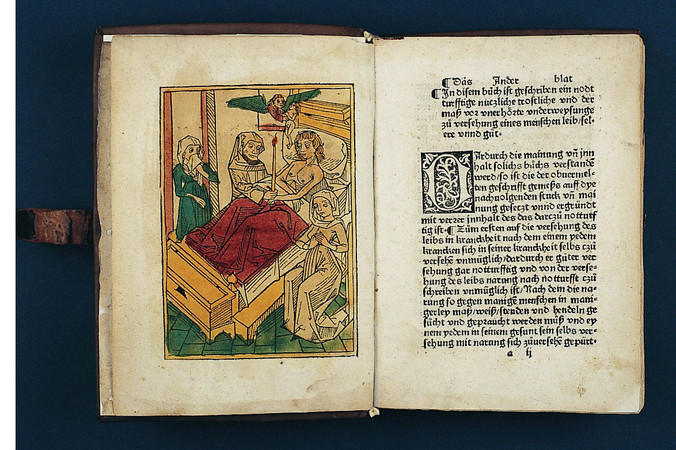 ¶ Das Ander blat
¶ In disem bůch ist geschriben ein nodt
turfftige nüczliche trostliche vnd der
maß vor vnerhörte vnderweysunge
zů versehung eines menschen leib/sel-
ere vnnd gůt·
DArdurch die mainung vñ jnn
halt solichs bůchs verstande
werd/so ist die der obuermel-
ten geschrifft gemeß auff dye
nachuolgenden stuck vñ mai
nung gesetzt vnnd ergründt
mit verrer innhalt des das darczů notturf
tig ist·¶ Zům ersten auff die versehung des
leibs in kranckheit nach dem einem yedem
krancken sich in seiner kranckheit selbs czů
versehē vnmüglich/dardurch er gůter ver-
sehung gar notturfftig vnd von der verse-
hung des leibs narung nach notturfft czů
schreiben vnmüglich ist/Nach dem die na
rung so gegen manigē menschen in mani-
gerley maß/weiß/stenden vnd hendeln ge
sücht vnd gepraucht werden můß vnd ey
nem yedem in seinem gesunt sein selbs ver-
sehung mit narung sich zůuersehē gepürt·
a ij